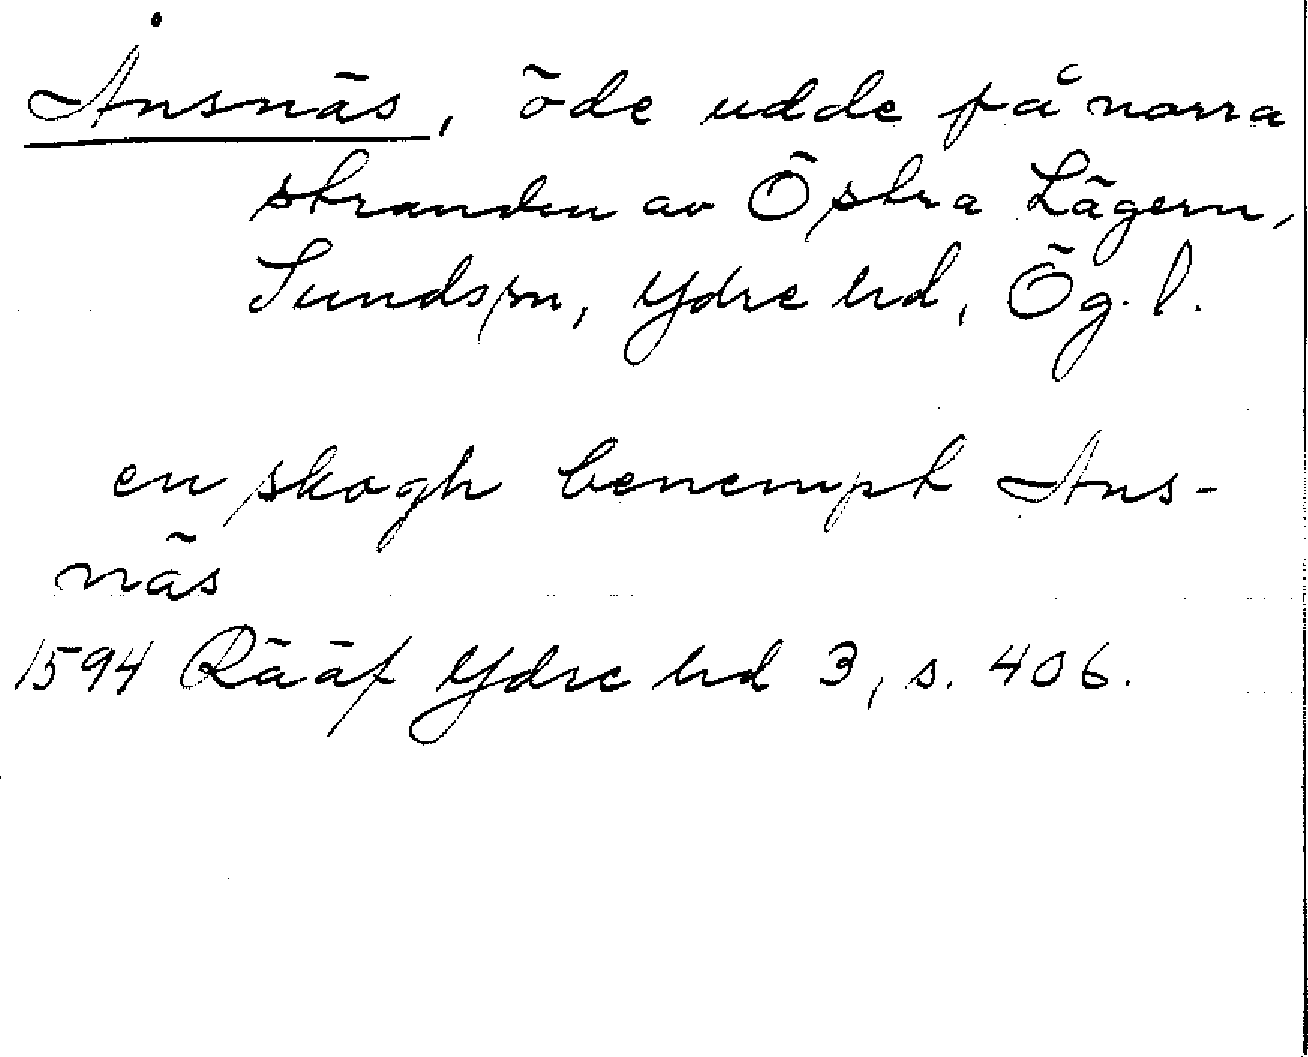 Ånsnäs, öde udde på norra
stranden av Östra Lägern,
Sunds sn, Ydre hd, Ög. l.
en skogh benempt Ans-
näs
1594 Rääf Ydre hd 3, s. 406.